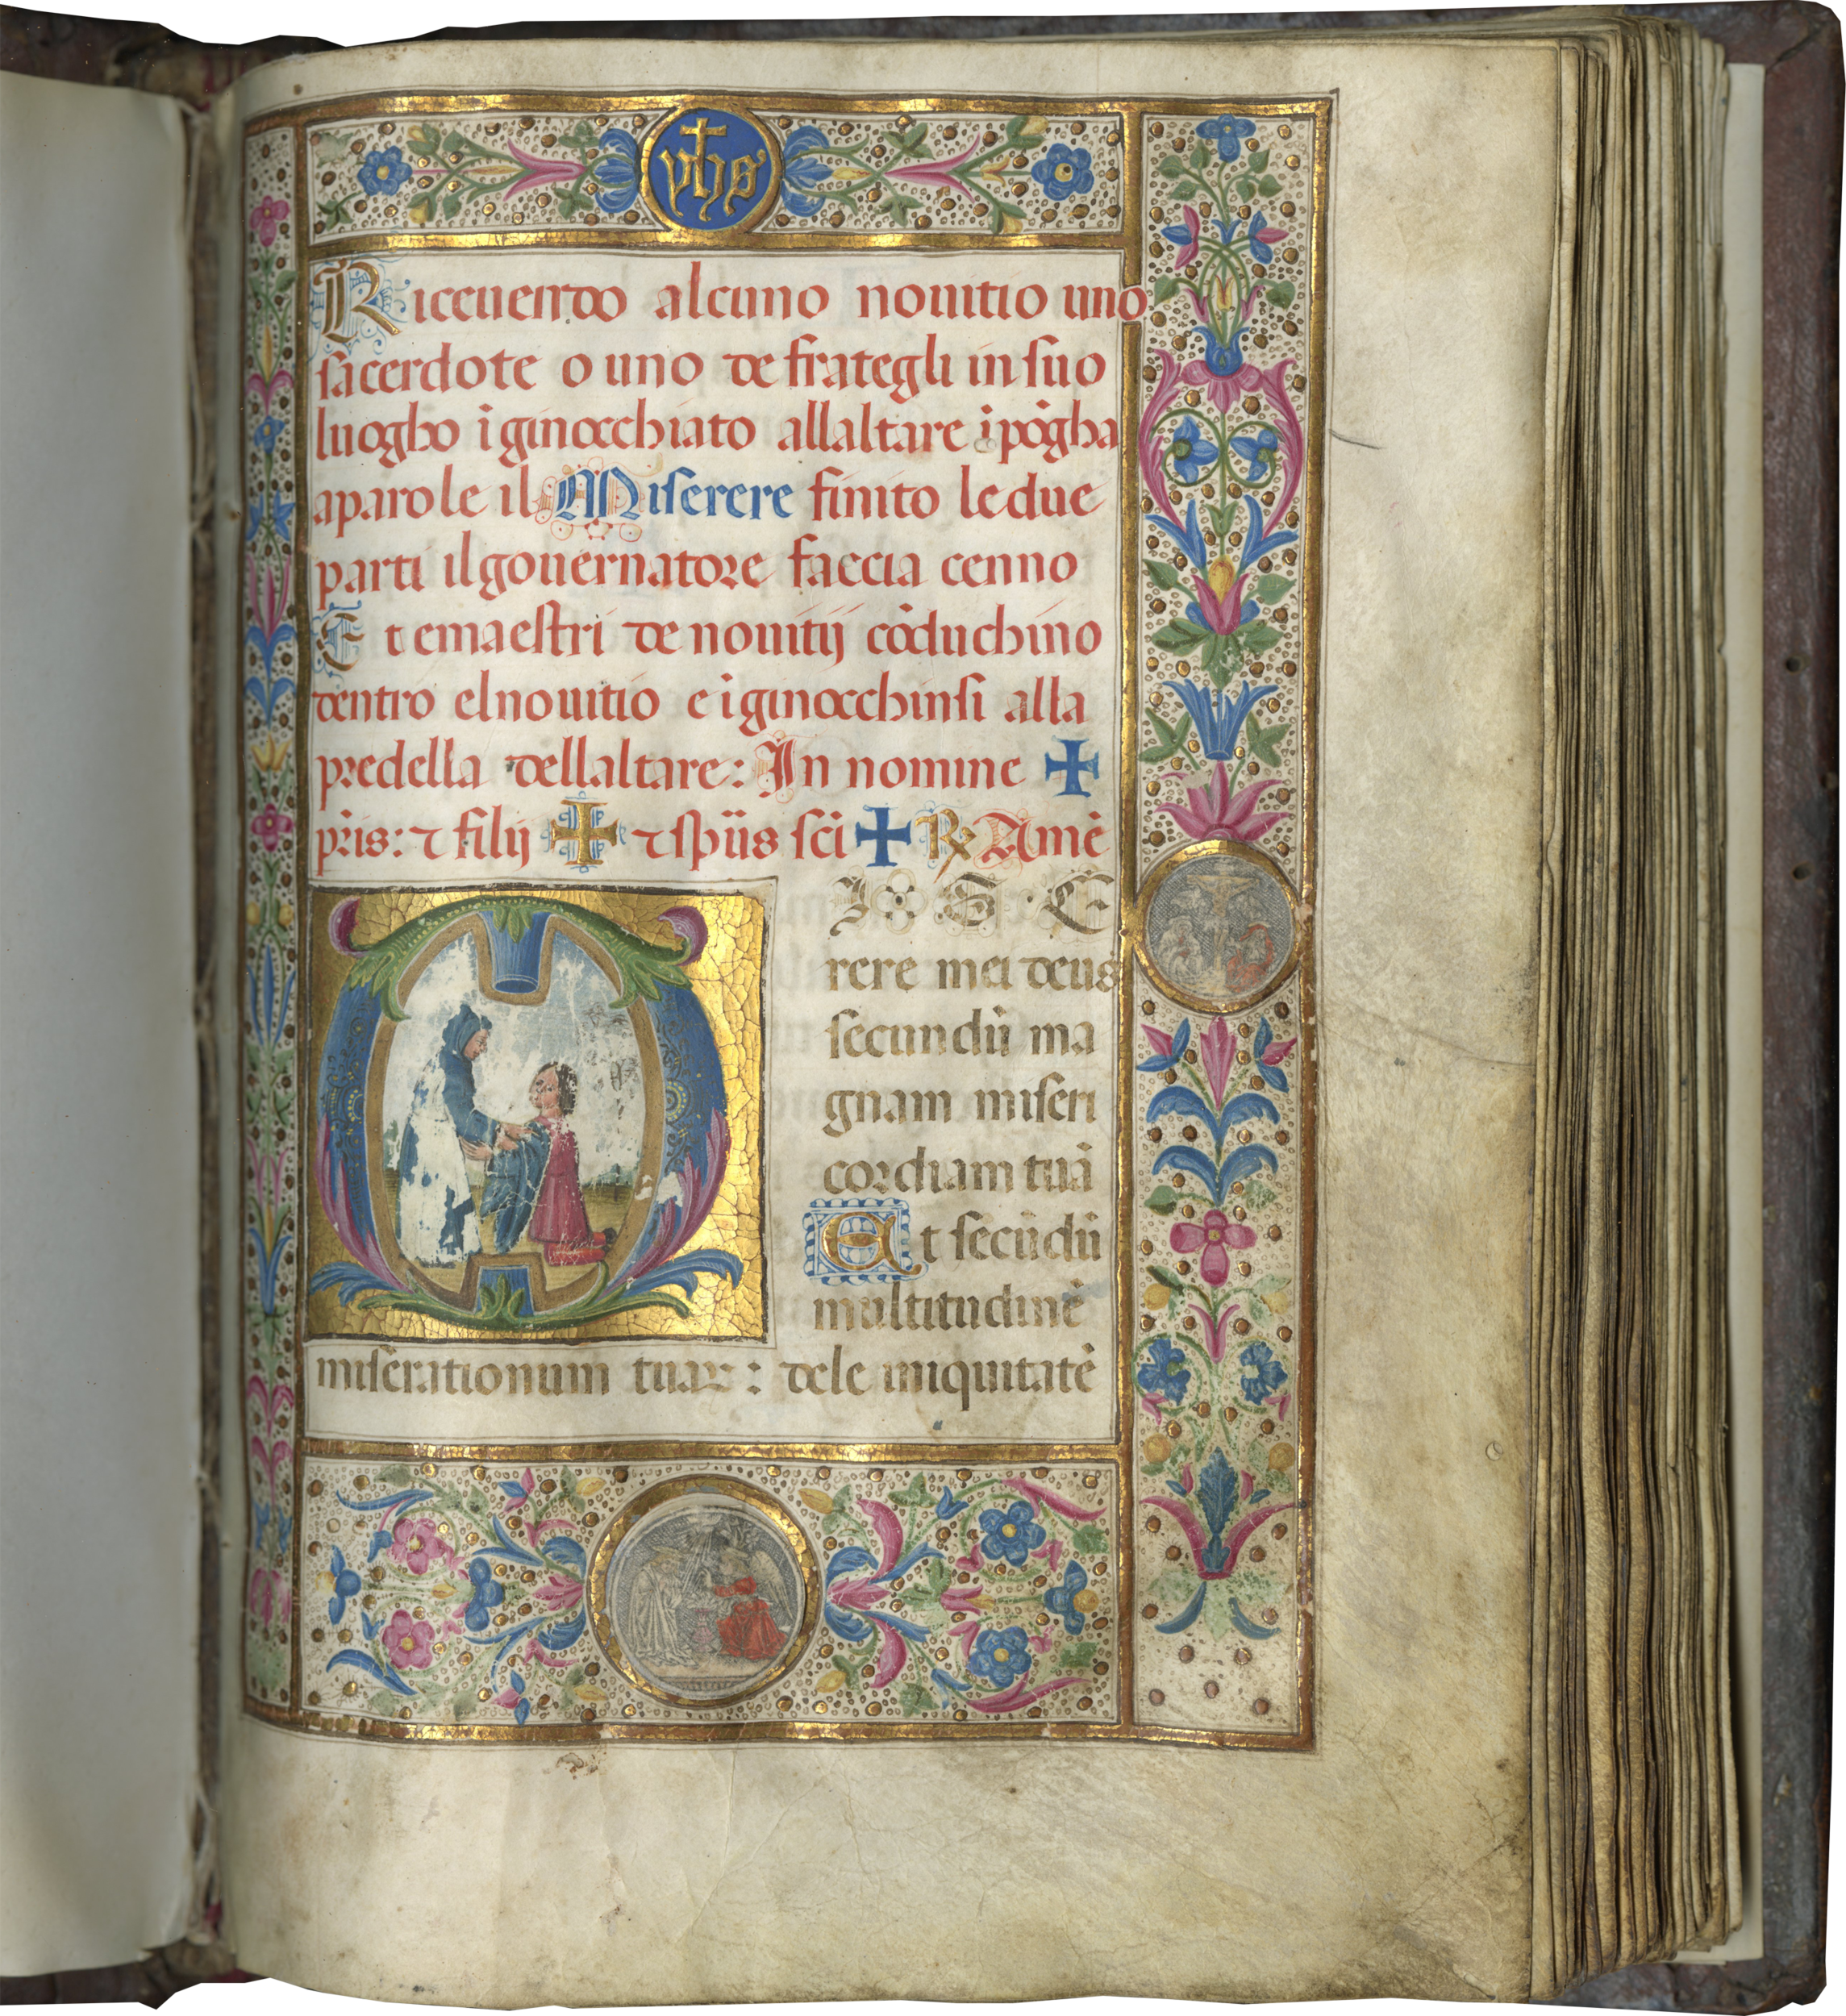 yħs
Riceuendo alcuno nouitio uno
sacerdote o uno de frategli in suo
luogho ī ginocchiato allaltare īpōgha
a parole il Miserere finito le due
parti il gouernatore faccia cenno
Et e maestri de nouitij cōduchino
dentro el nouitio e īginocchinsi alla
predella dellaltare: In nomine ✠
pr̄is: ⁊ filij ✠ ⁊ sp̄us sc̄i ✠ ℟ Amē
MISE
rere mei deus
secundū ma
gnam miseri
cordiam tuā
Et secūdū
multitudinē
miserationum tuaꝝ: dele iniquitatē